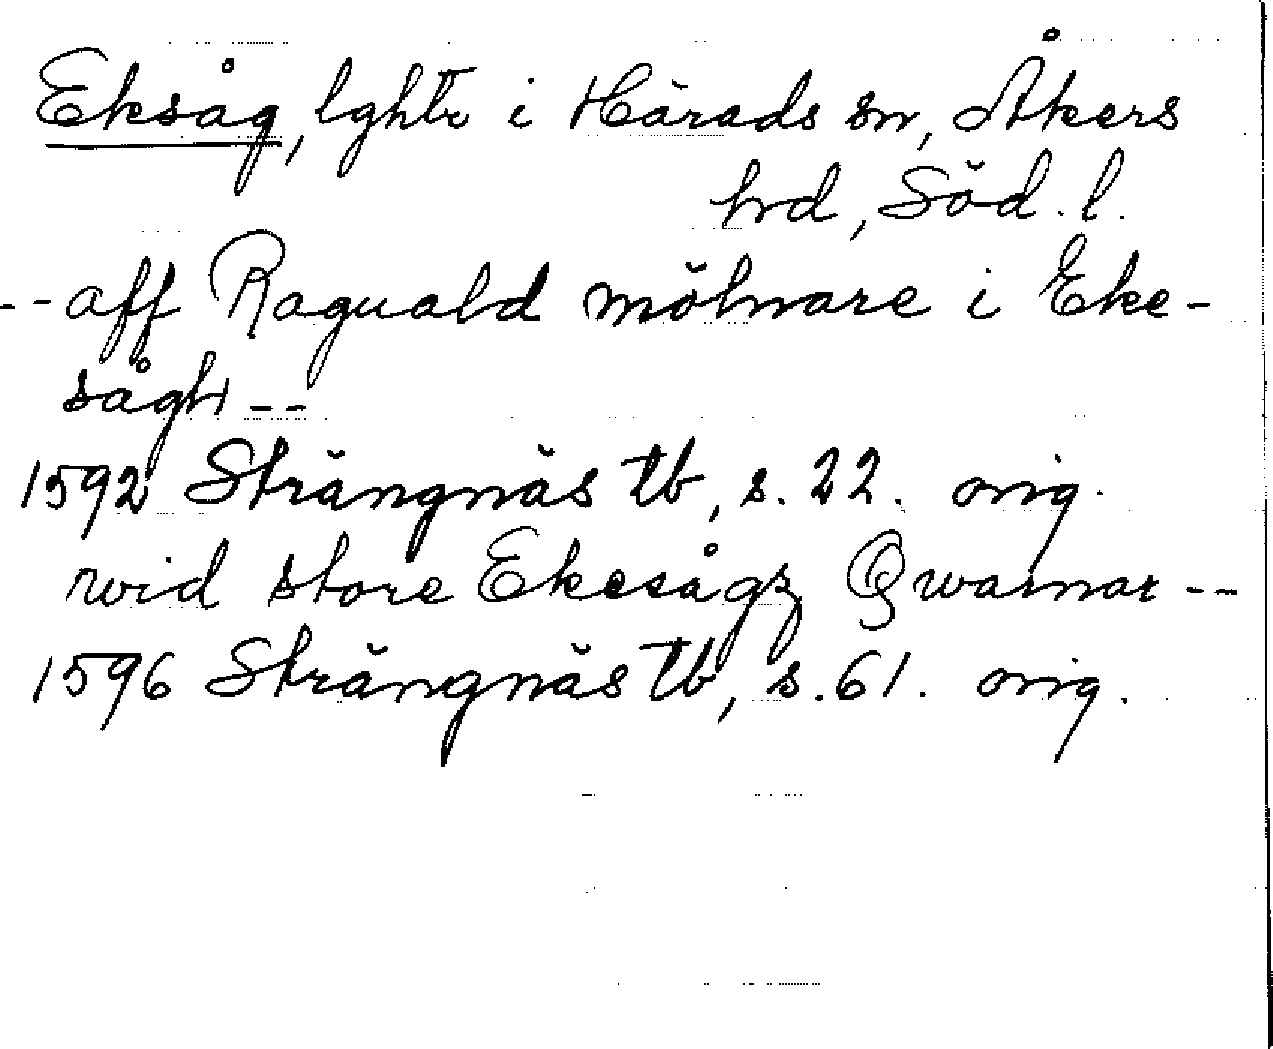 Eksåg, lghtr i Härads sn, Åkers
hrd, Söd. l.
-- aff Raguald mölnare i Eke-
sågh --
1592 Strängnäs tb, s. 22. orig.
wid store Ekesågz Qwarnar --
1596 Strängnäs tb, s. 61. orig.